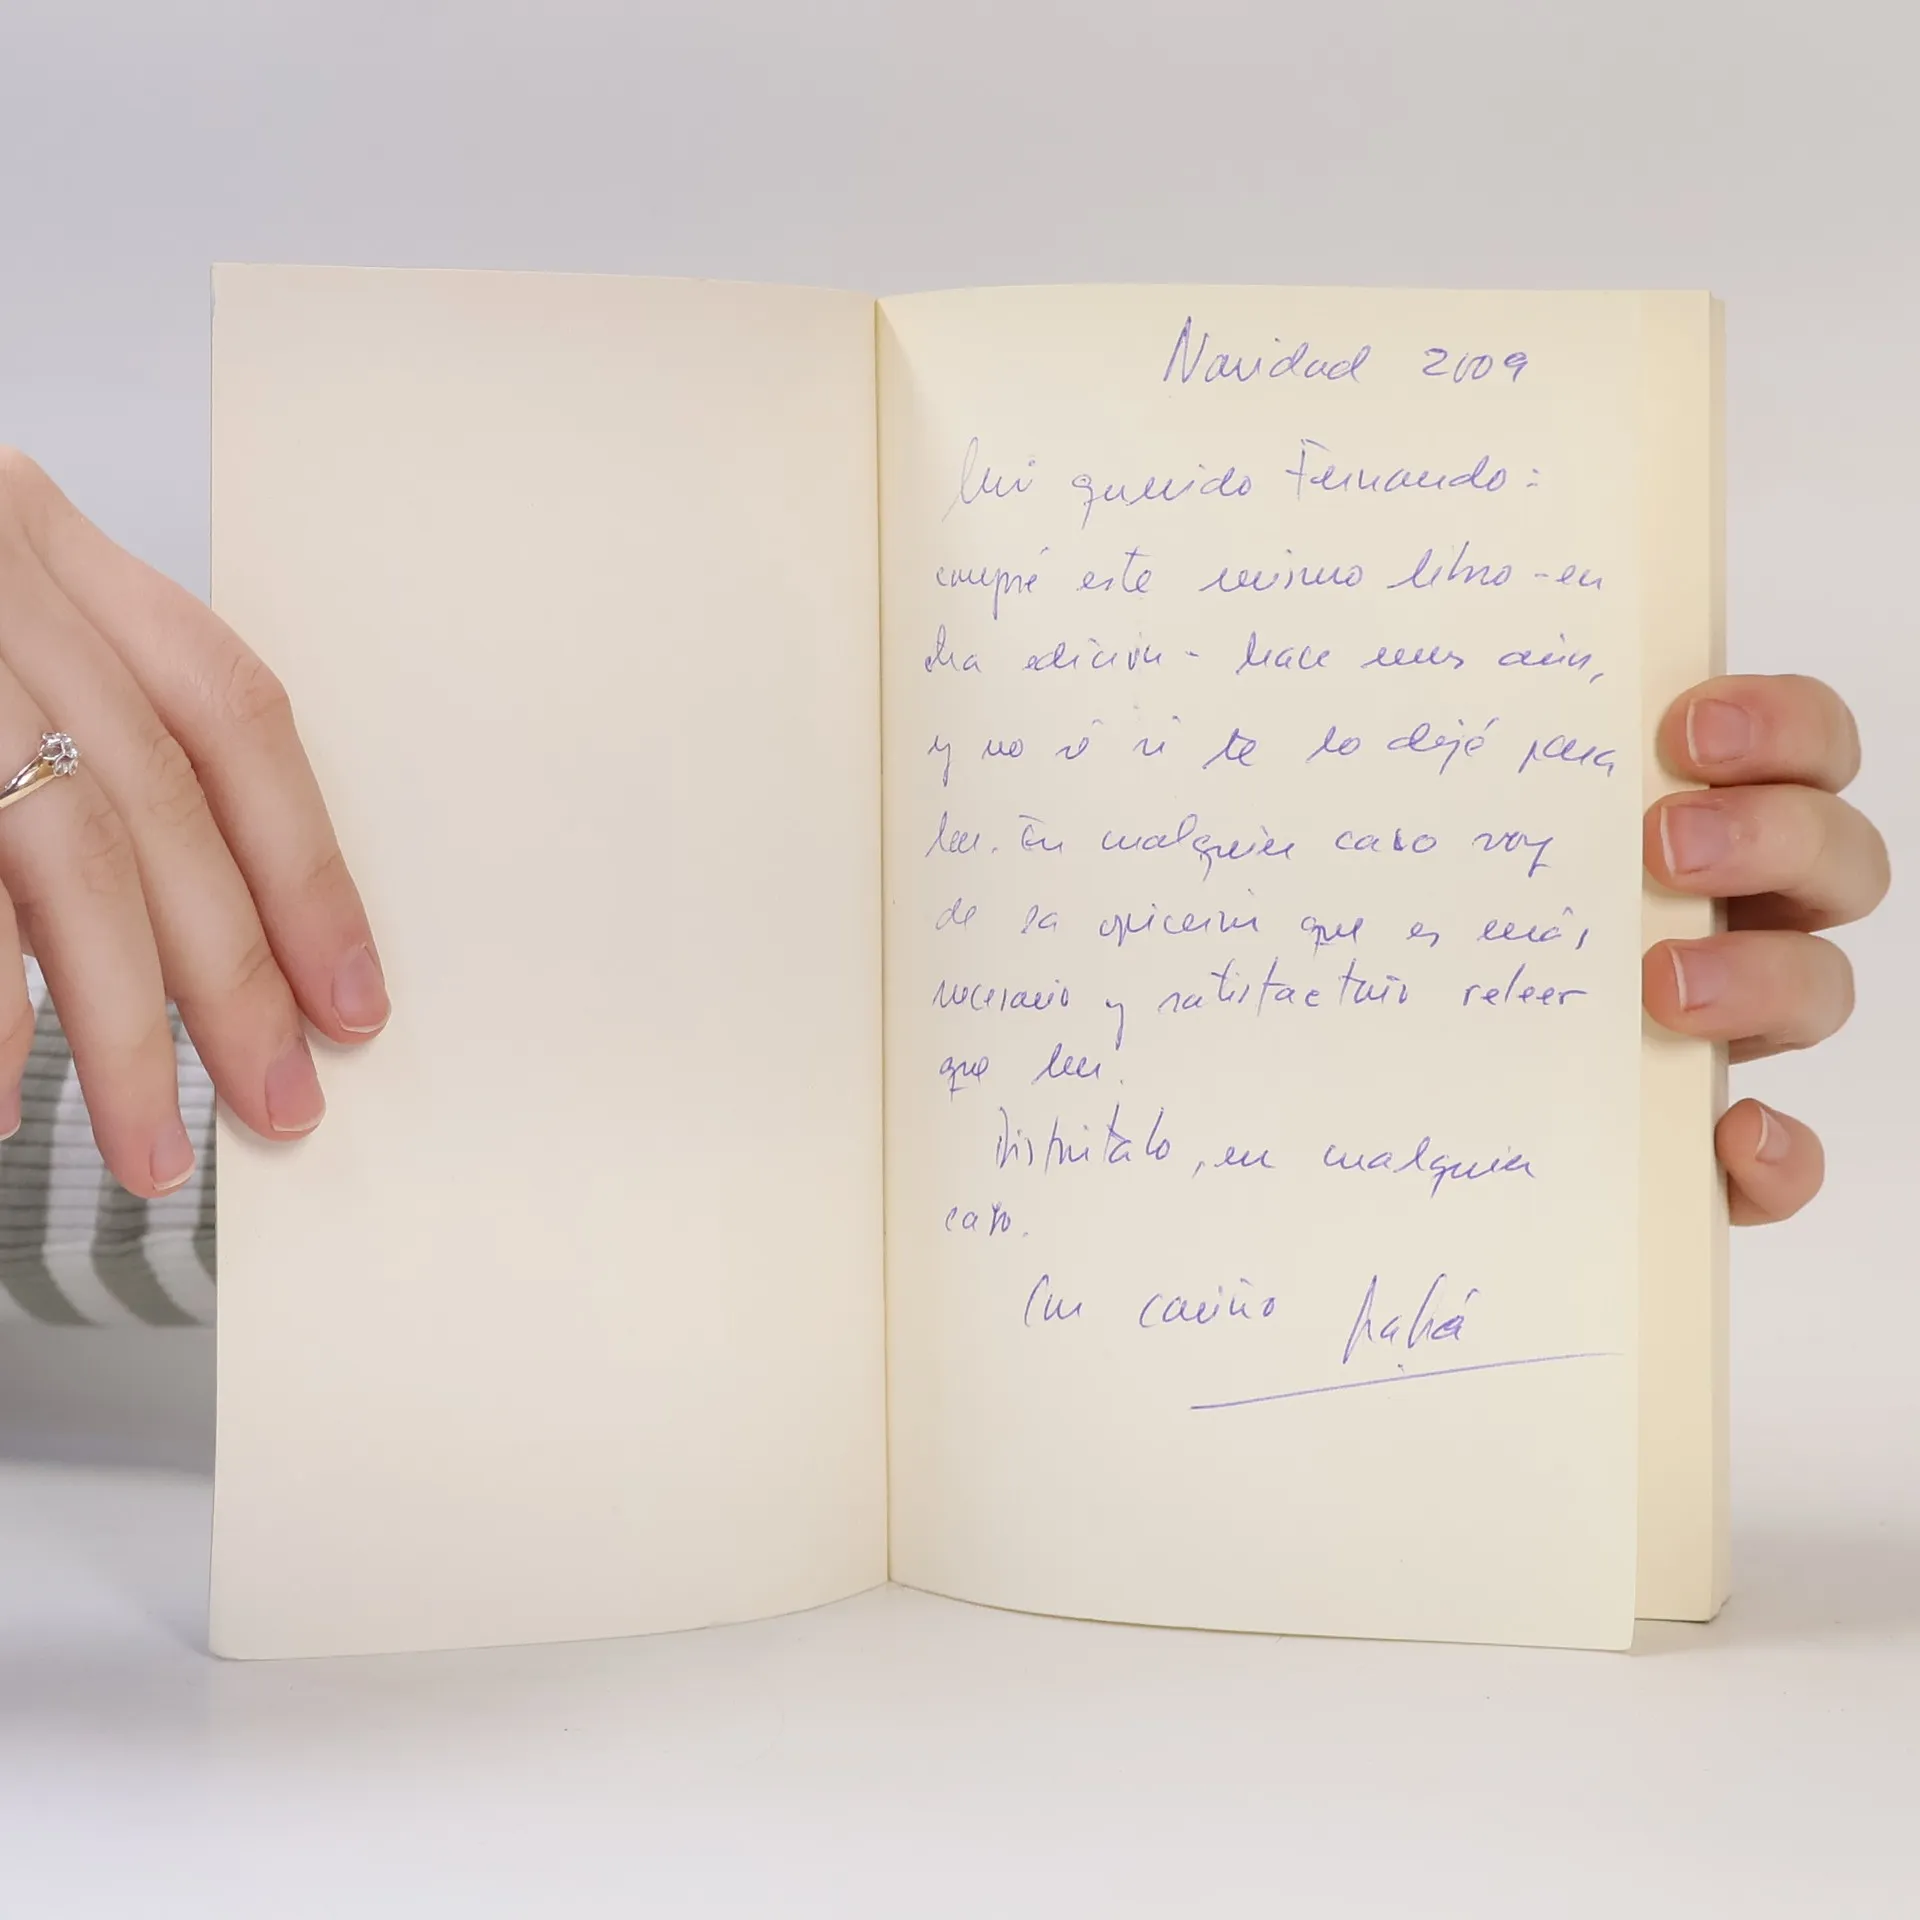 Navidad 2009
Mi querido Fernando:
compré este mismo libro - en
otra edición - hace unos años,
y no sé si te lo dejé para
leer. En cualquier caso soy
de la opinión que es más
necesario y satisfactorio releer
que leer.
Disfrútalo, en cualquier
caso.
Con cariño papá